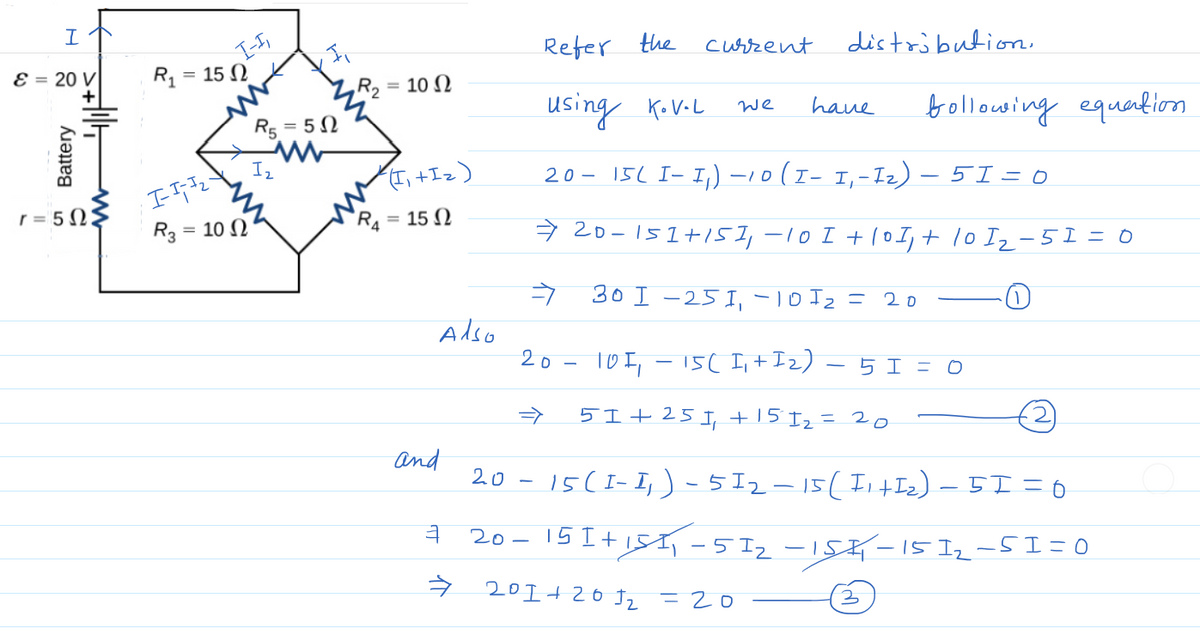 I
I-I₁
I₁
ε = 20 V
R₁ = 15 Ω
R₂ = 10 Ω
+
-
Battery
R₅ = 5 Ω
I₂
(I₁+I₂)
I-I₁-I₂
r = 5 Ω
R₃ = 10 Ω
R₄ = 15 Ω
Refer the current distribution.
using K.V.L we have following equation
20 - 15(I-I₁) - 10(I-I₁-I₂) - 5I = 0
⇒ 20 - 15I + 15I₁ - 10I + 10I₁ + 10I₂ - 5I = 0
⇒ 30I - 25I₁ - 10I₂ = 20 — ①
Also
20 - 10I₁ - 15(I₁+I₂) - 5I = 0
⇒ 5I + 25I₁ + 15I₂ = 20 — ②
and
20 - 15(I-I₁) - 5I₂ - 15(I₁+I₂) - 5I = 0
⇒ 20 - 15I + 15I₁ - 5I₂ - 15I₁ - 15I₂ - 5I = 0
⇒ 20I + 20I₂ = 20 — ③